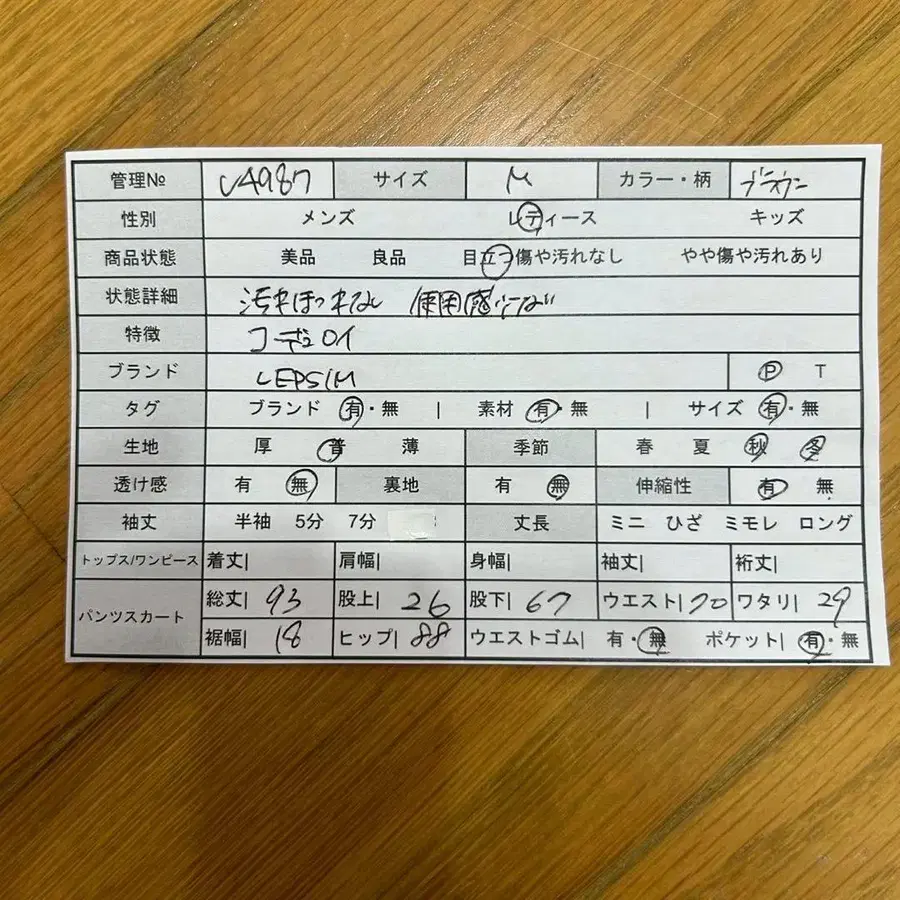 管理№ V4987 サイズ M カラー・柄 ブラウン
性別 メンズ レディース キッズ
商品状態 美品 良品 目立つ傷や汚れなし やや傷や汚れあり
状態詳細 汚れほつれなし 使用感
特徴 コーデュロイ
ブランド LEPSIM P T
タグ ブランド 有・無 | 素材 有・無 | サイズ 有・無
生地 厚 普 薄 季節 春 夏 秋 冬
透け感 有 無 裏地 有 無 伸縮性 有 無
袖丈 半袖 5分 7分 丈長 ミニ ひざ ミモレ ロング
トップス/ワンピース 着丈| 肩幅| 身幅| 袖丈| 裄丈|
パンツスカート 総丈| 93 股上| 26 股下| 67 ウエスト| 70 ワタリ| 29
裾幅| 18 ヒップ| 88 ウエストゴム| 有・無 ポケット| 有・無